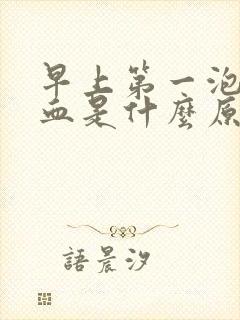 早上第一泡
血是什麼原
語晨汐